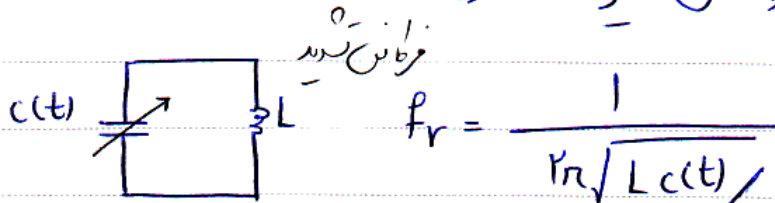 فرکانس تشدید
c(t)
L
f_r = 1 / ۲π√L c(t)